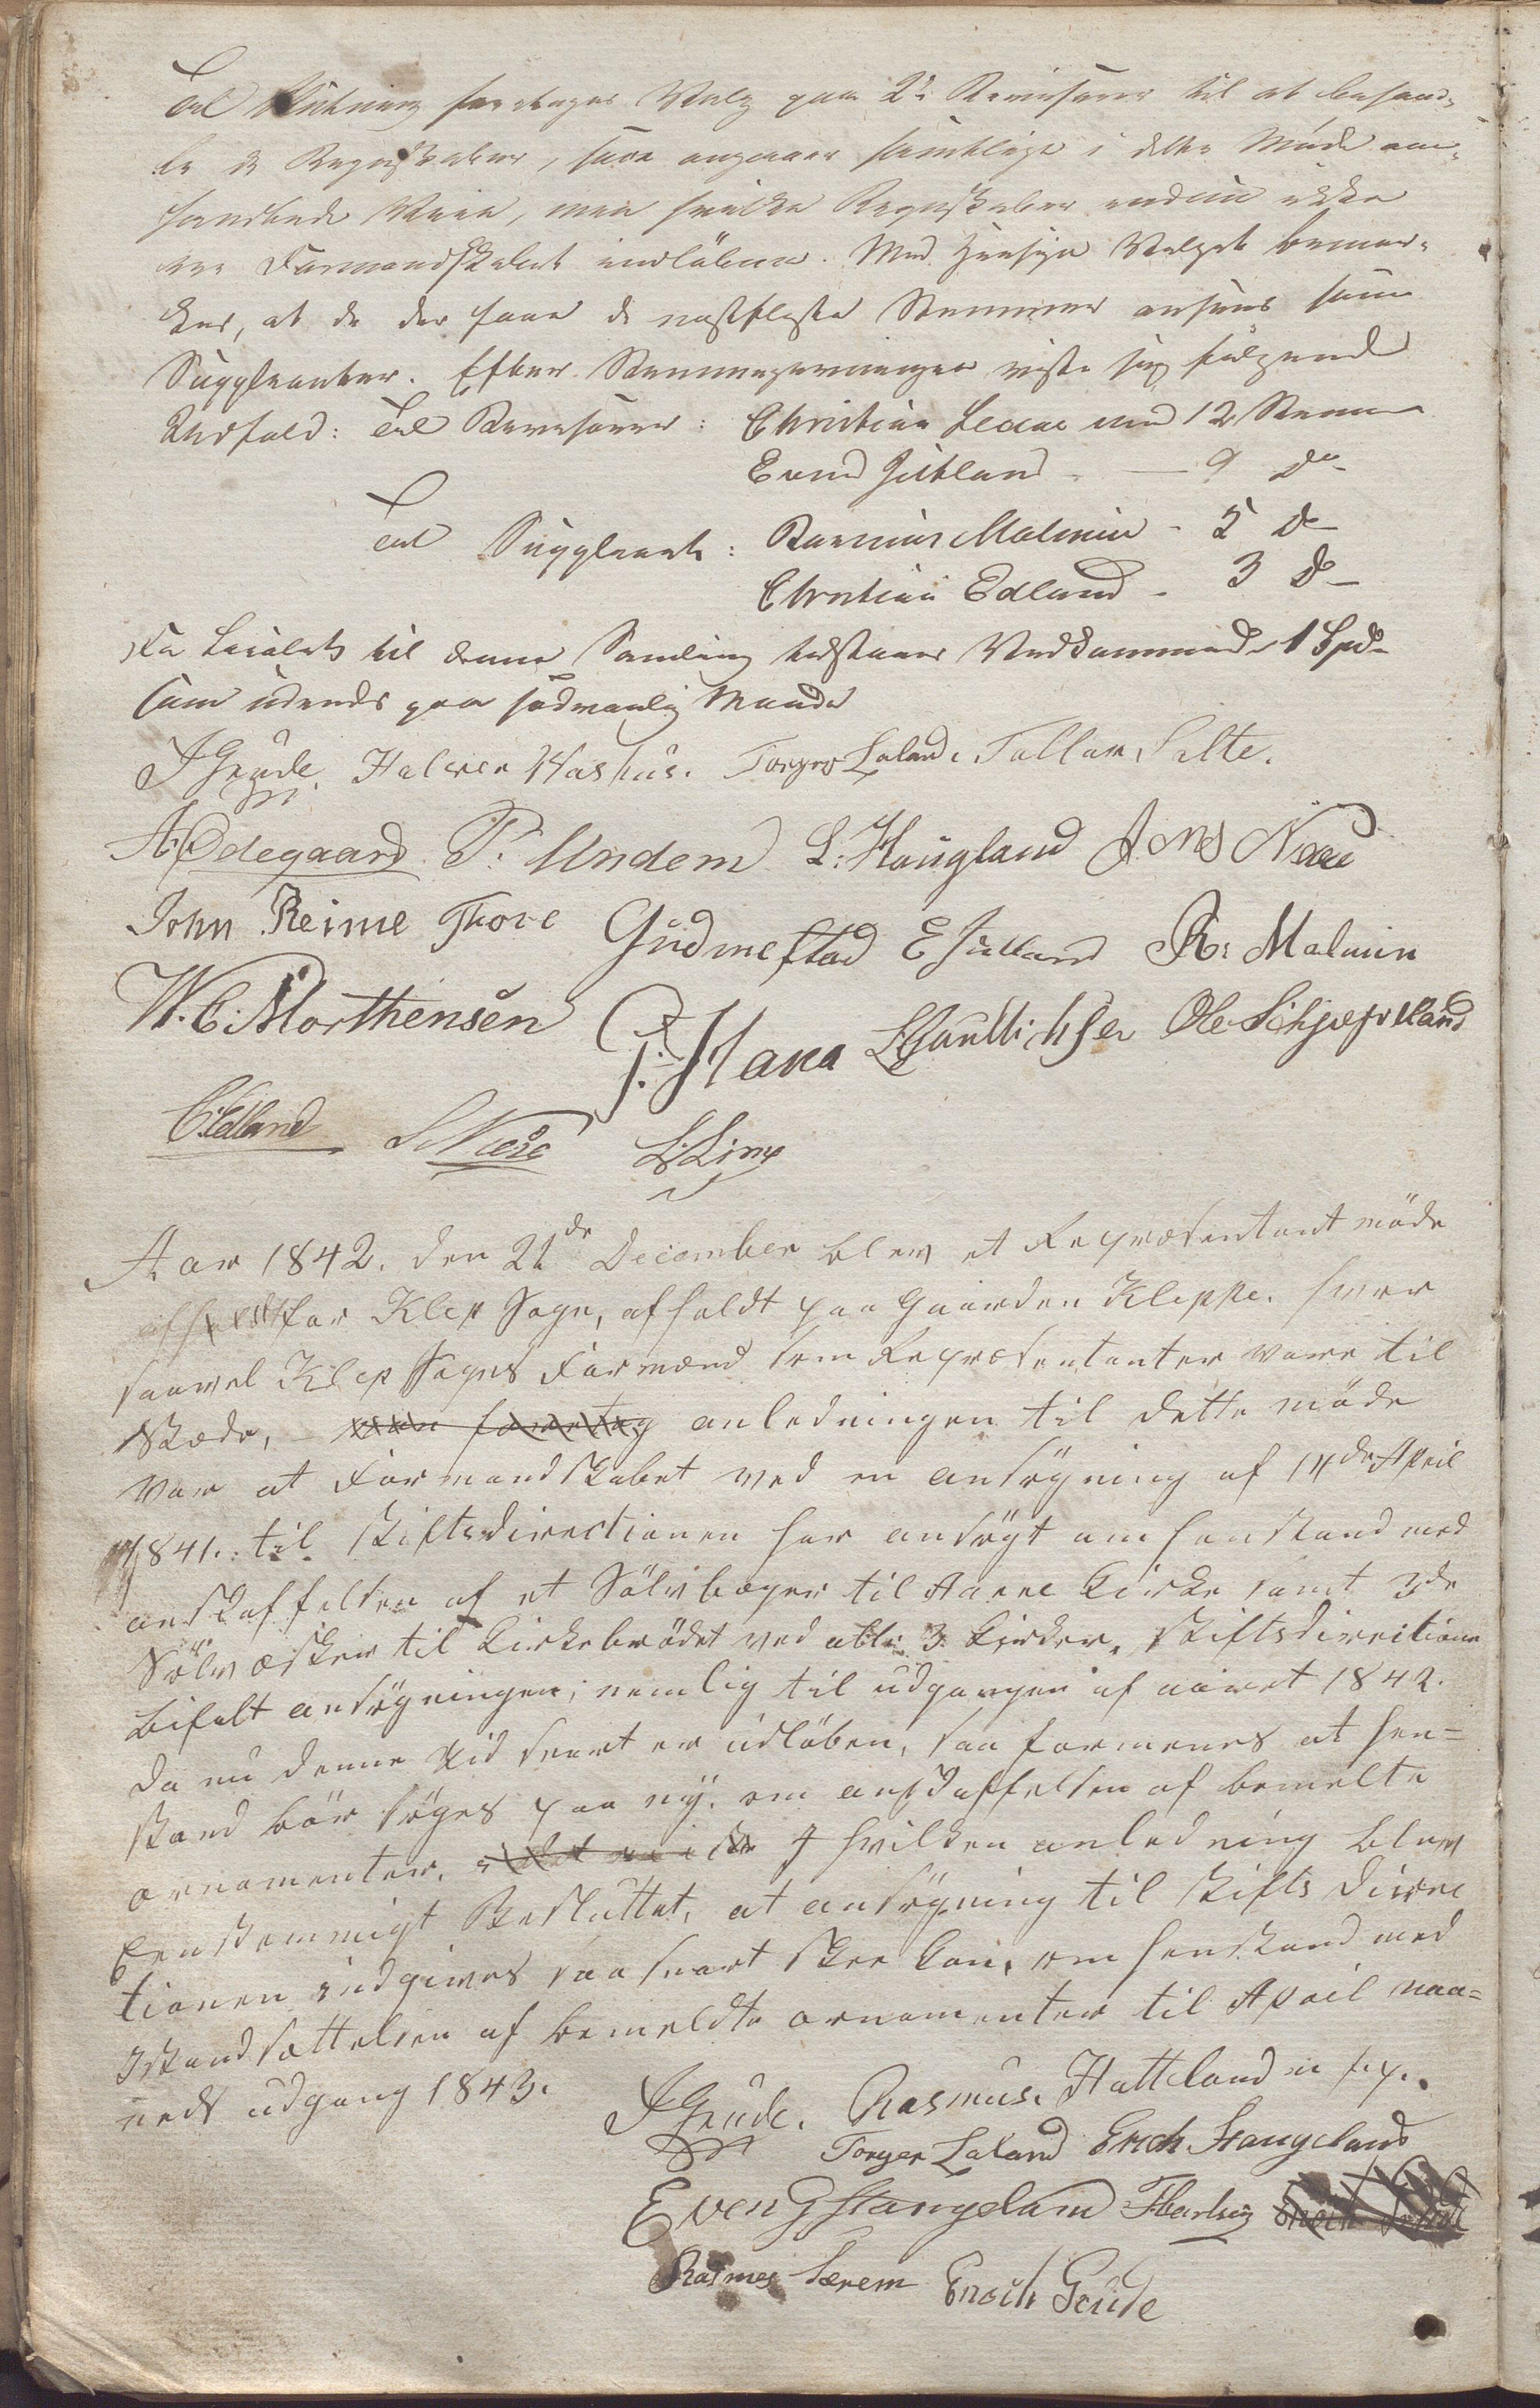 Til Slutning foretages Valg paa 2de Revisorer til at behand-
le de Regnskaber, som angaaer samtlige i dette Møde om-
handlede Veie, men hvilke Regnskaber endnu ikke
ere Formandskabet indløbne. Med Hensyn Valget bemær-
kes, at de der faae de næstfleste Stemmer ansees som
Suppleanter. Efter Stemmegivningen viste sig følgende
Udfald: Til Revisorer: Christian med 12 Stemmer
Evend Jütland - 9 do
Til Suppleant: Rasmus Malmin - 5 do
Christian Edland - 3 do
For Localet til denne Samling tilstaaes Vedkommende 1 Spd.
som udredes paa sædvanlig Maade
JGrude. Halvor Aashus. Torger Laland. Tallax Salte.
A Ødegaard P. Undem L: Haugland Jens Næse
John Reime Thore Gudmestad E Jütland R: Malmin
W. C. Morthensen P. Hana Ole Schjæfveland
C: Edland S. Næse L: Line
Aar 1842. den 21de December blev et Repræsentantmøde
afholdt for Klep Sogn, afholdt paa Gaarden Kleppe. hvor
saavel Klep Sogns Formænd som Repræsentanter vare til
stæde, - anledningen til dette møde
var at Formandskabet ved en ansøgning af 14de April
1841. til Stiftsdirectionen har ansøgt om henstand med
anskaffelsen af et Sølvbæger til Aarre Kirke samt 3de
Sølvæsker til Kirkebrødet ved alle 3 Kirker. Stiftsdirectionen
bifalt ansøgningen; nemlig til udgangen af aaret 1842.
da nu denne tid snart er udløben, saa formenes at hen-
stand bør søges paa ny. om anskaffelsen af bemelte
ornamenter. I hvilken anledning blev
Eenstemmigt Besluttet, at ansøgning til Stifts Direc
tionen indgives saa snart skee kan, om henstand med
Istandsættelsen af bemeldte ornamenter til April maa-
neds udgang 1843.
JGrude. Rasmus. Hatteland m. f. p.
Torger Laland Erich Stangeland
Even G Stangeland
Rasmes Særem Enoch Grude